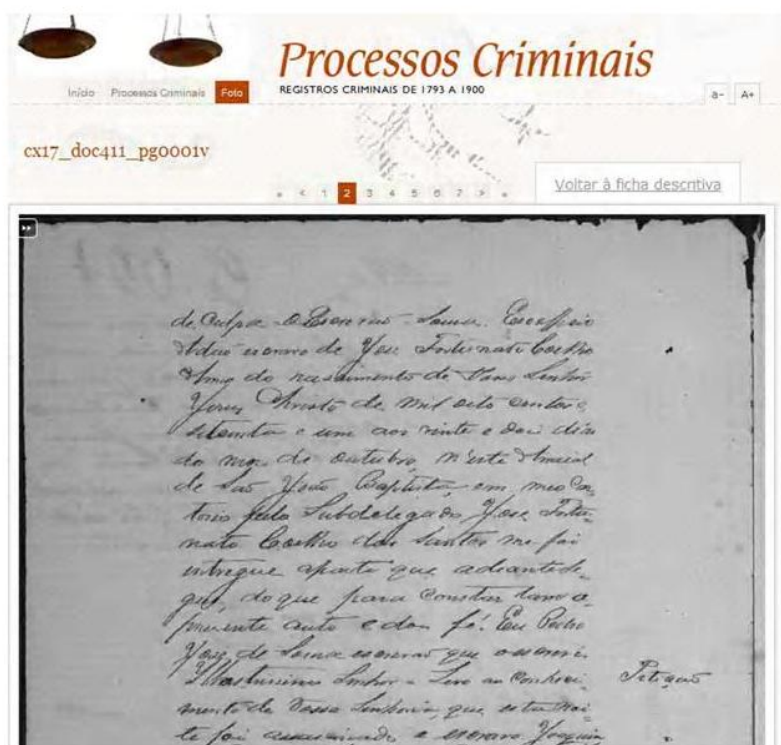 Processos Criminais
REGISTROS CRIMINAIS DE 1793 A 1900
Início Processos Criminais Foto
a- A+
cx17_doc411_pg0001v
« < 1 2 3 4 5 6 7 > »
Voltar à ficha descritiva
de Culpa O Escrivão Souza
Adão escravo de Jose Fortunato Coelho
Anno do nascimento de Nosso Senhor
Jesus Christo de mil oito centos e
setenta e um aos vinte e dois dias
do mez de outubro, n'este Arraial
de São João Baptista, em meo Car
torio pelo Subdelegado Jose Fortu
nato Coelho dos Santos me foi
intregue aparte que adeante se
gue, do que para Constar lavro o
presente auto e dou fé. Eu Pedro
Jose de Souza escrivão que o escrevi.
Illustrissimo Senhor = Levo ao Conheci
Petição
mento de Vossa Senhoria, que esta noi
te foi assassinado o escravo Joaquim